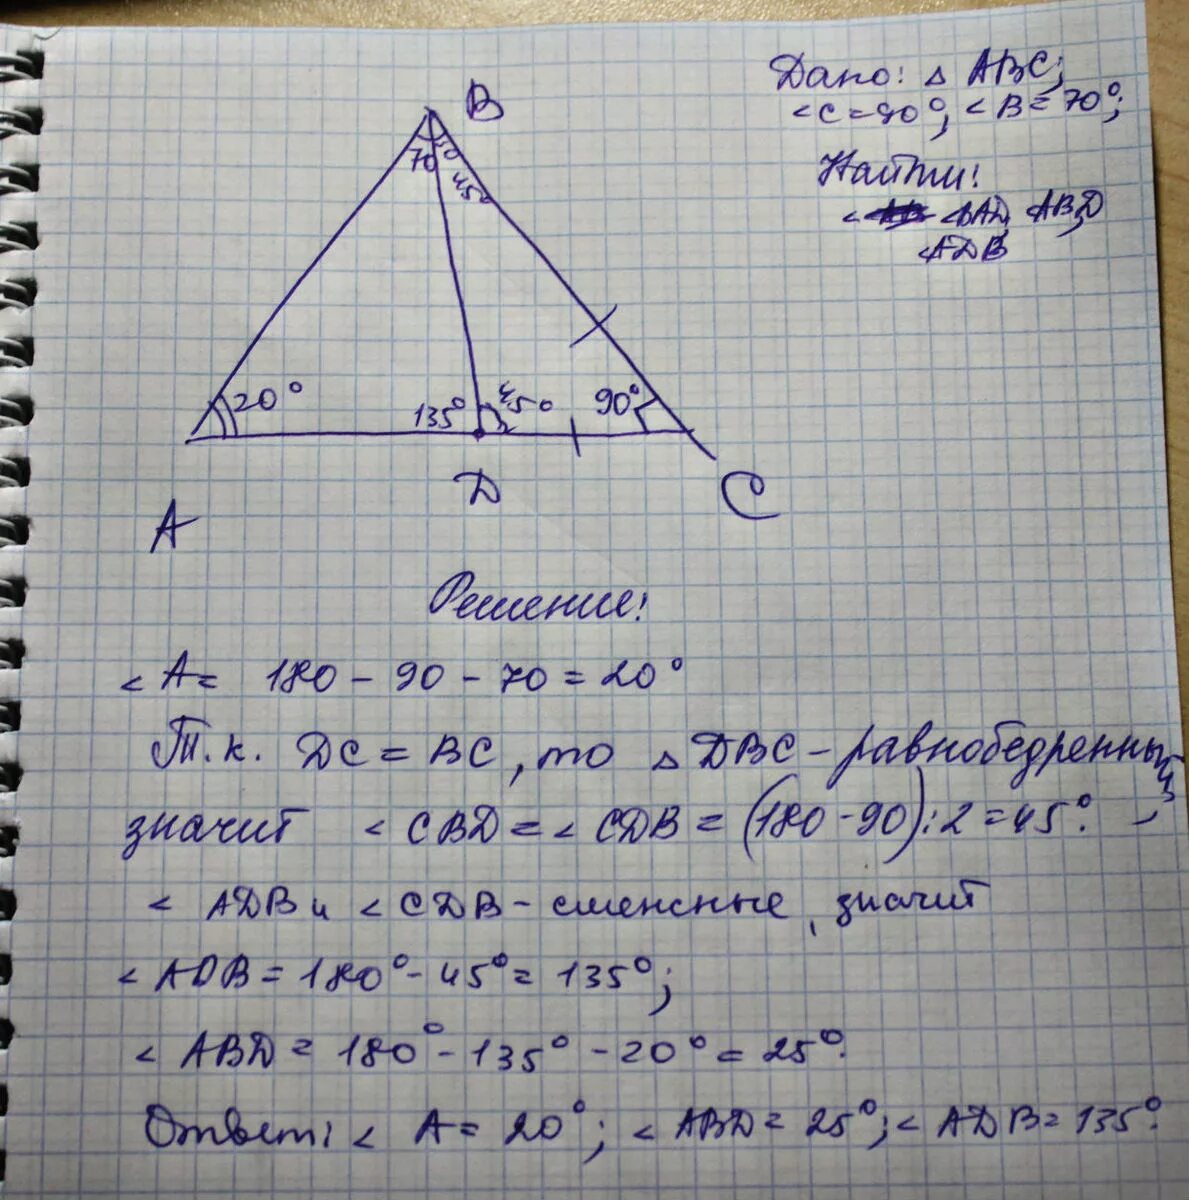 Дано: △ ABC;
<C=90°, <B=70°;
Найти:
< <BAD, <ABD
<ADB
B
70
45°
20°
135°
45°
90°
A
D
C
Решение:
<A= 180-90-70=20°
Т.к. DC=BC, то △DBC-равнобедренный,
значит <CBD=<CDB=(180-90):2=45°.
<ADB и <CDB-смежные, значит
<ADB=180°-45°=135°;
<ABD=180°-135°-20°=25°.
Ответ: <A=20°; <ABD=25°; <ADB=135°.